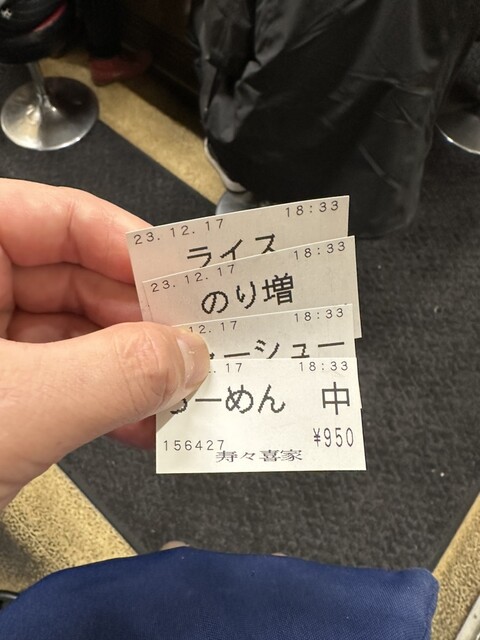 23.12.17 18:33
ライス
23.12.17 18:33
のり増
12.17 18:33
ーシュー
.17 18:33
らーめん 中
156427 ¥950
寿々喜家